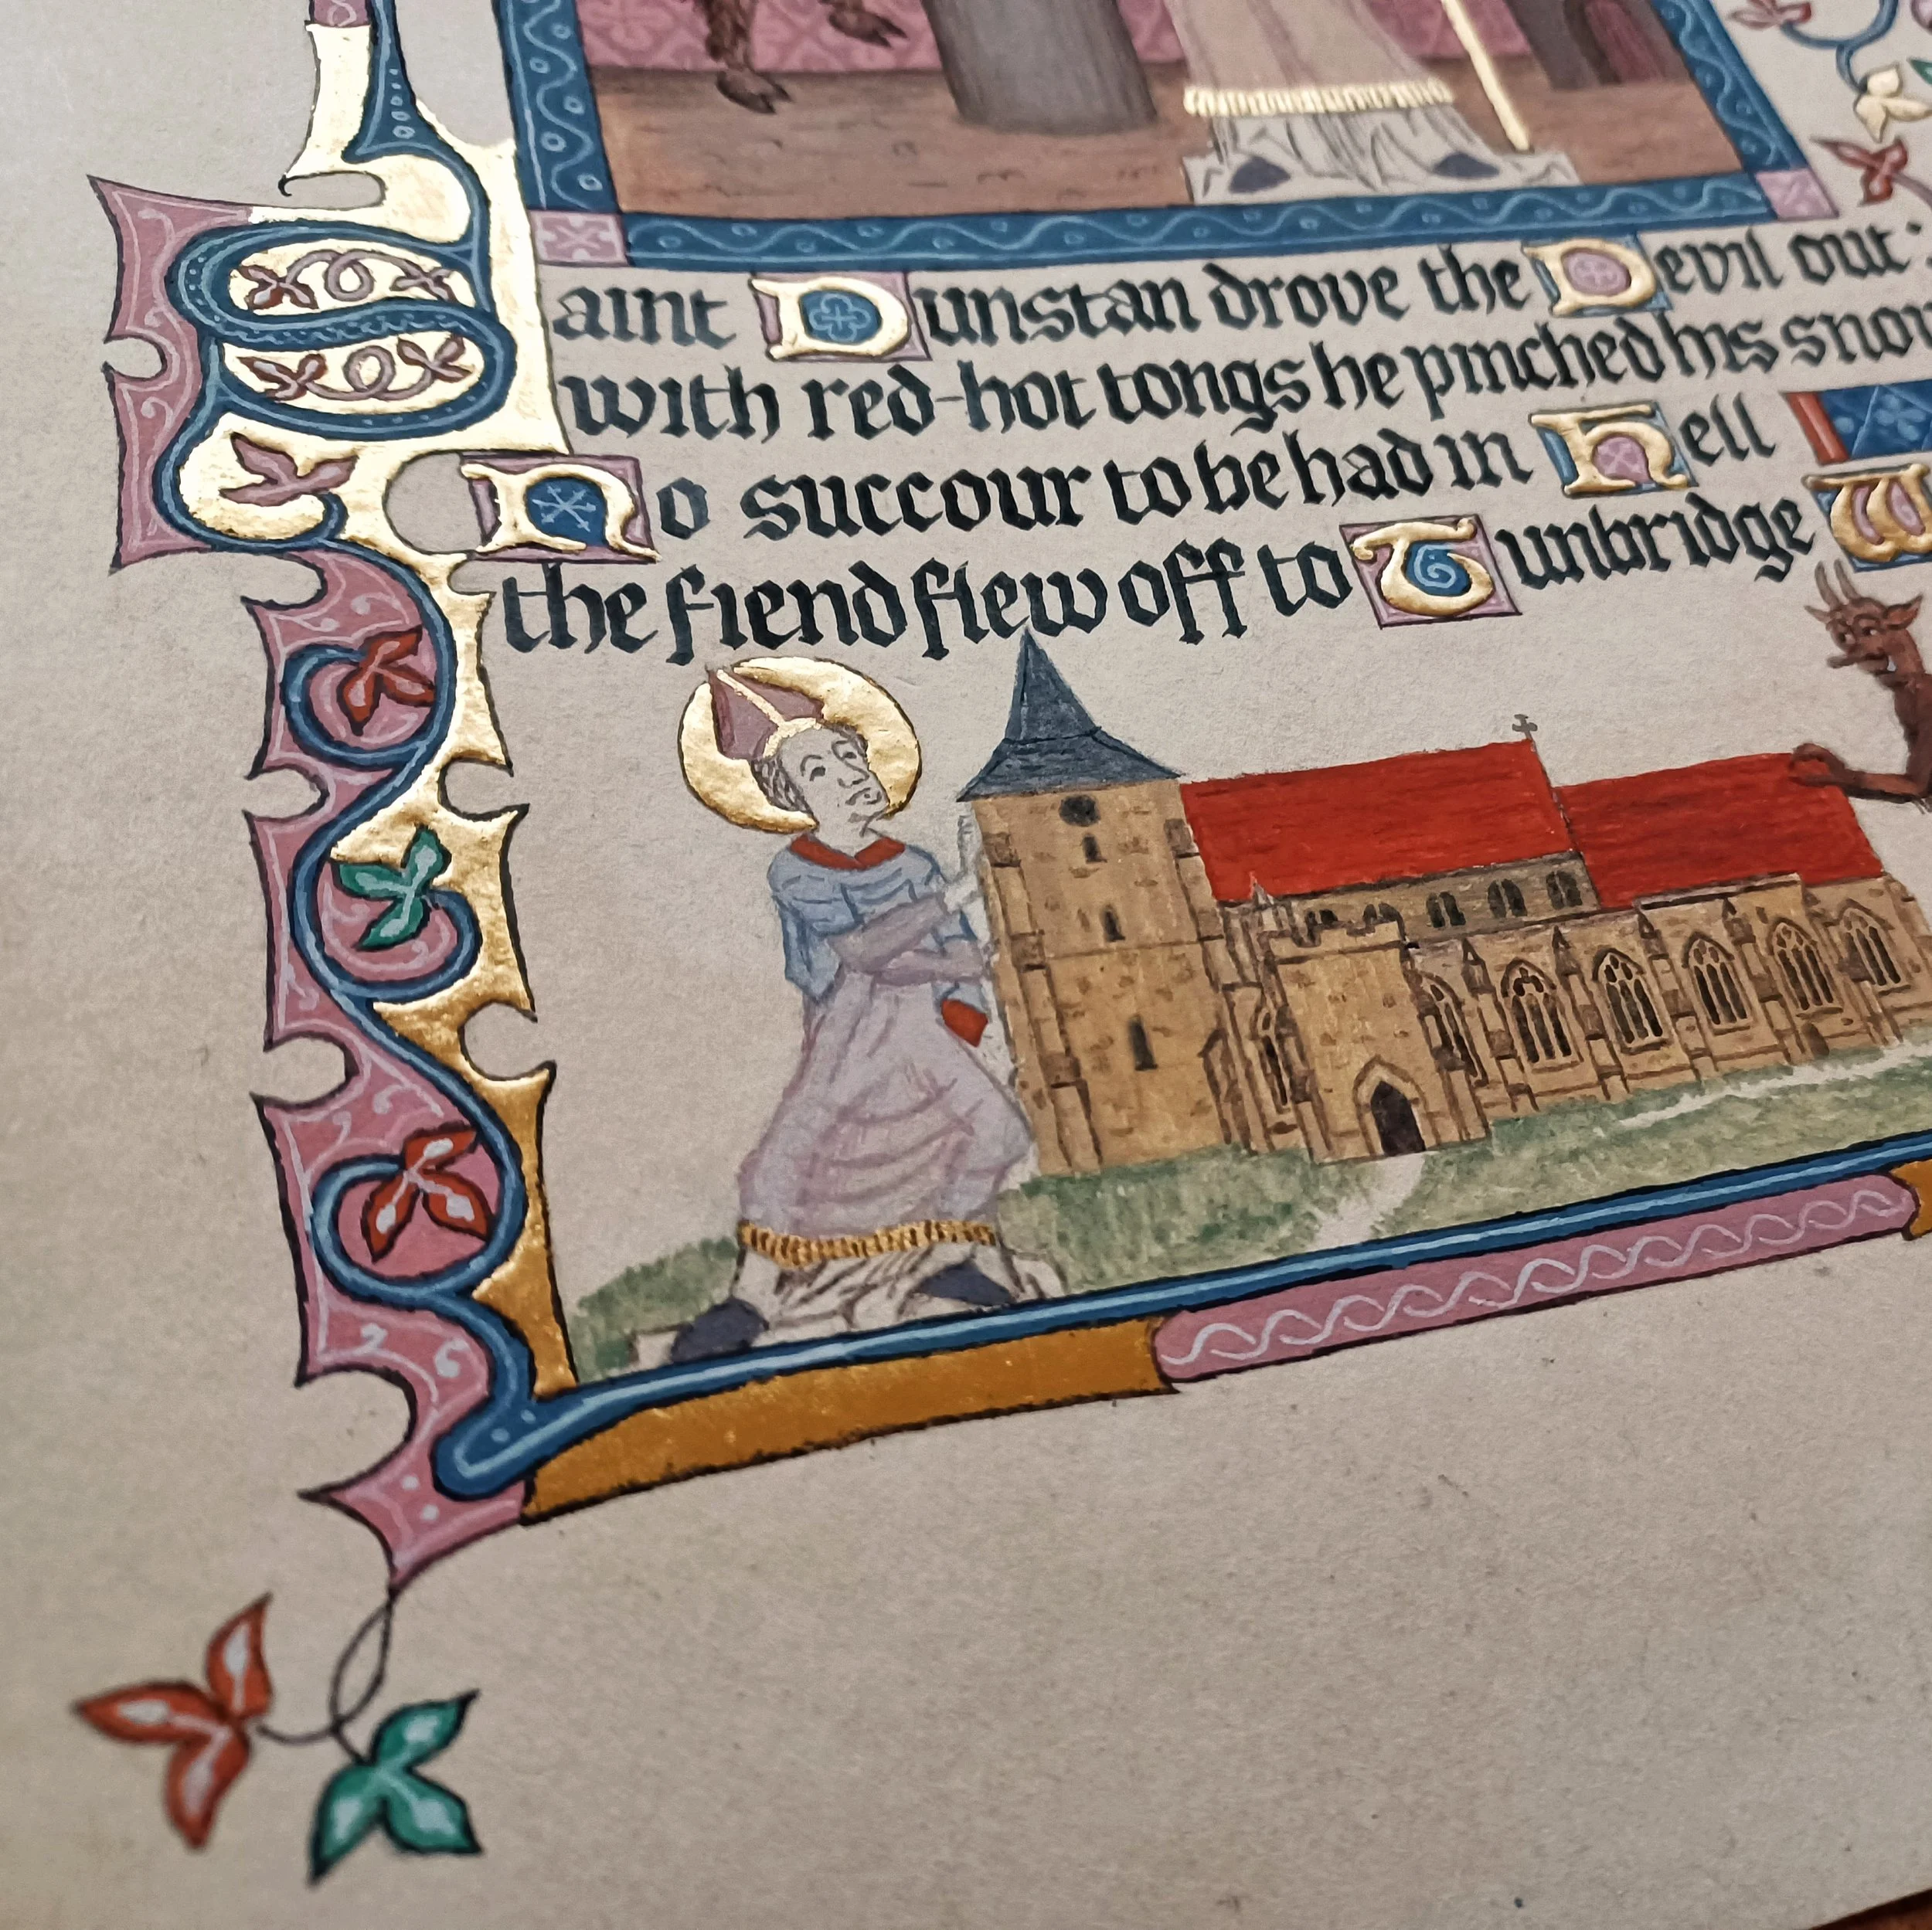 Saint Dunstan drove the Devil out:
with red-hot tongs he pinched his
No succour to be had in Hell
the fiend flew off to Tunbridge